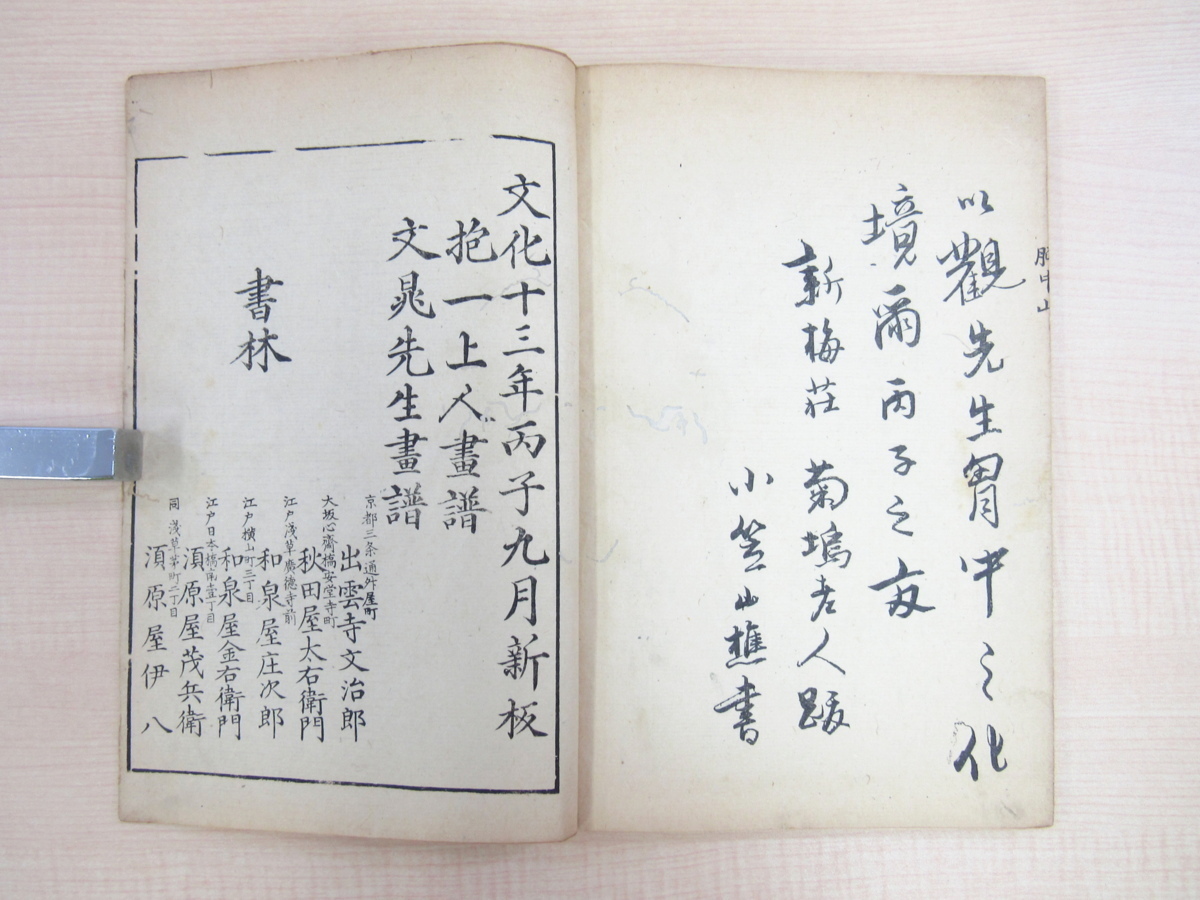 胸中山
以觀先生胃中之化
境爾丙子之
新梅荘 菊塢老人跋
小笠山樵書
文化十三年丙子九月新板
抱一上人畫譜
文晁先生畫譜
書林
京都三条通舛屋町
出雲寺文治郎
大坂心齋橋安堂寺町
秋田屋太右衛門
江戸浅草廣德寺前
和泉屋庄次郎
江戸横山町三丁目
和泉屋金右衛門
江戸日本橋南壹丁目
須原屋茂兵衛
同 浅草茅町二丁目
須原屋伊八